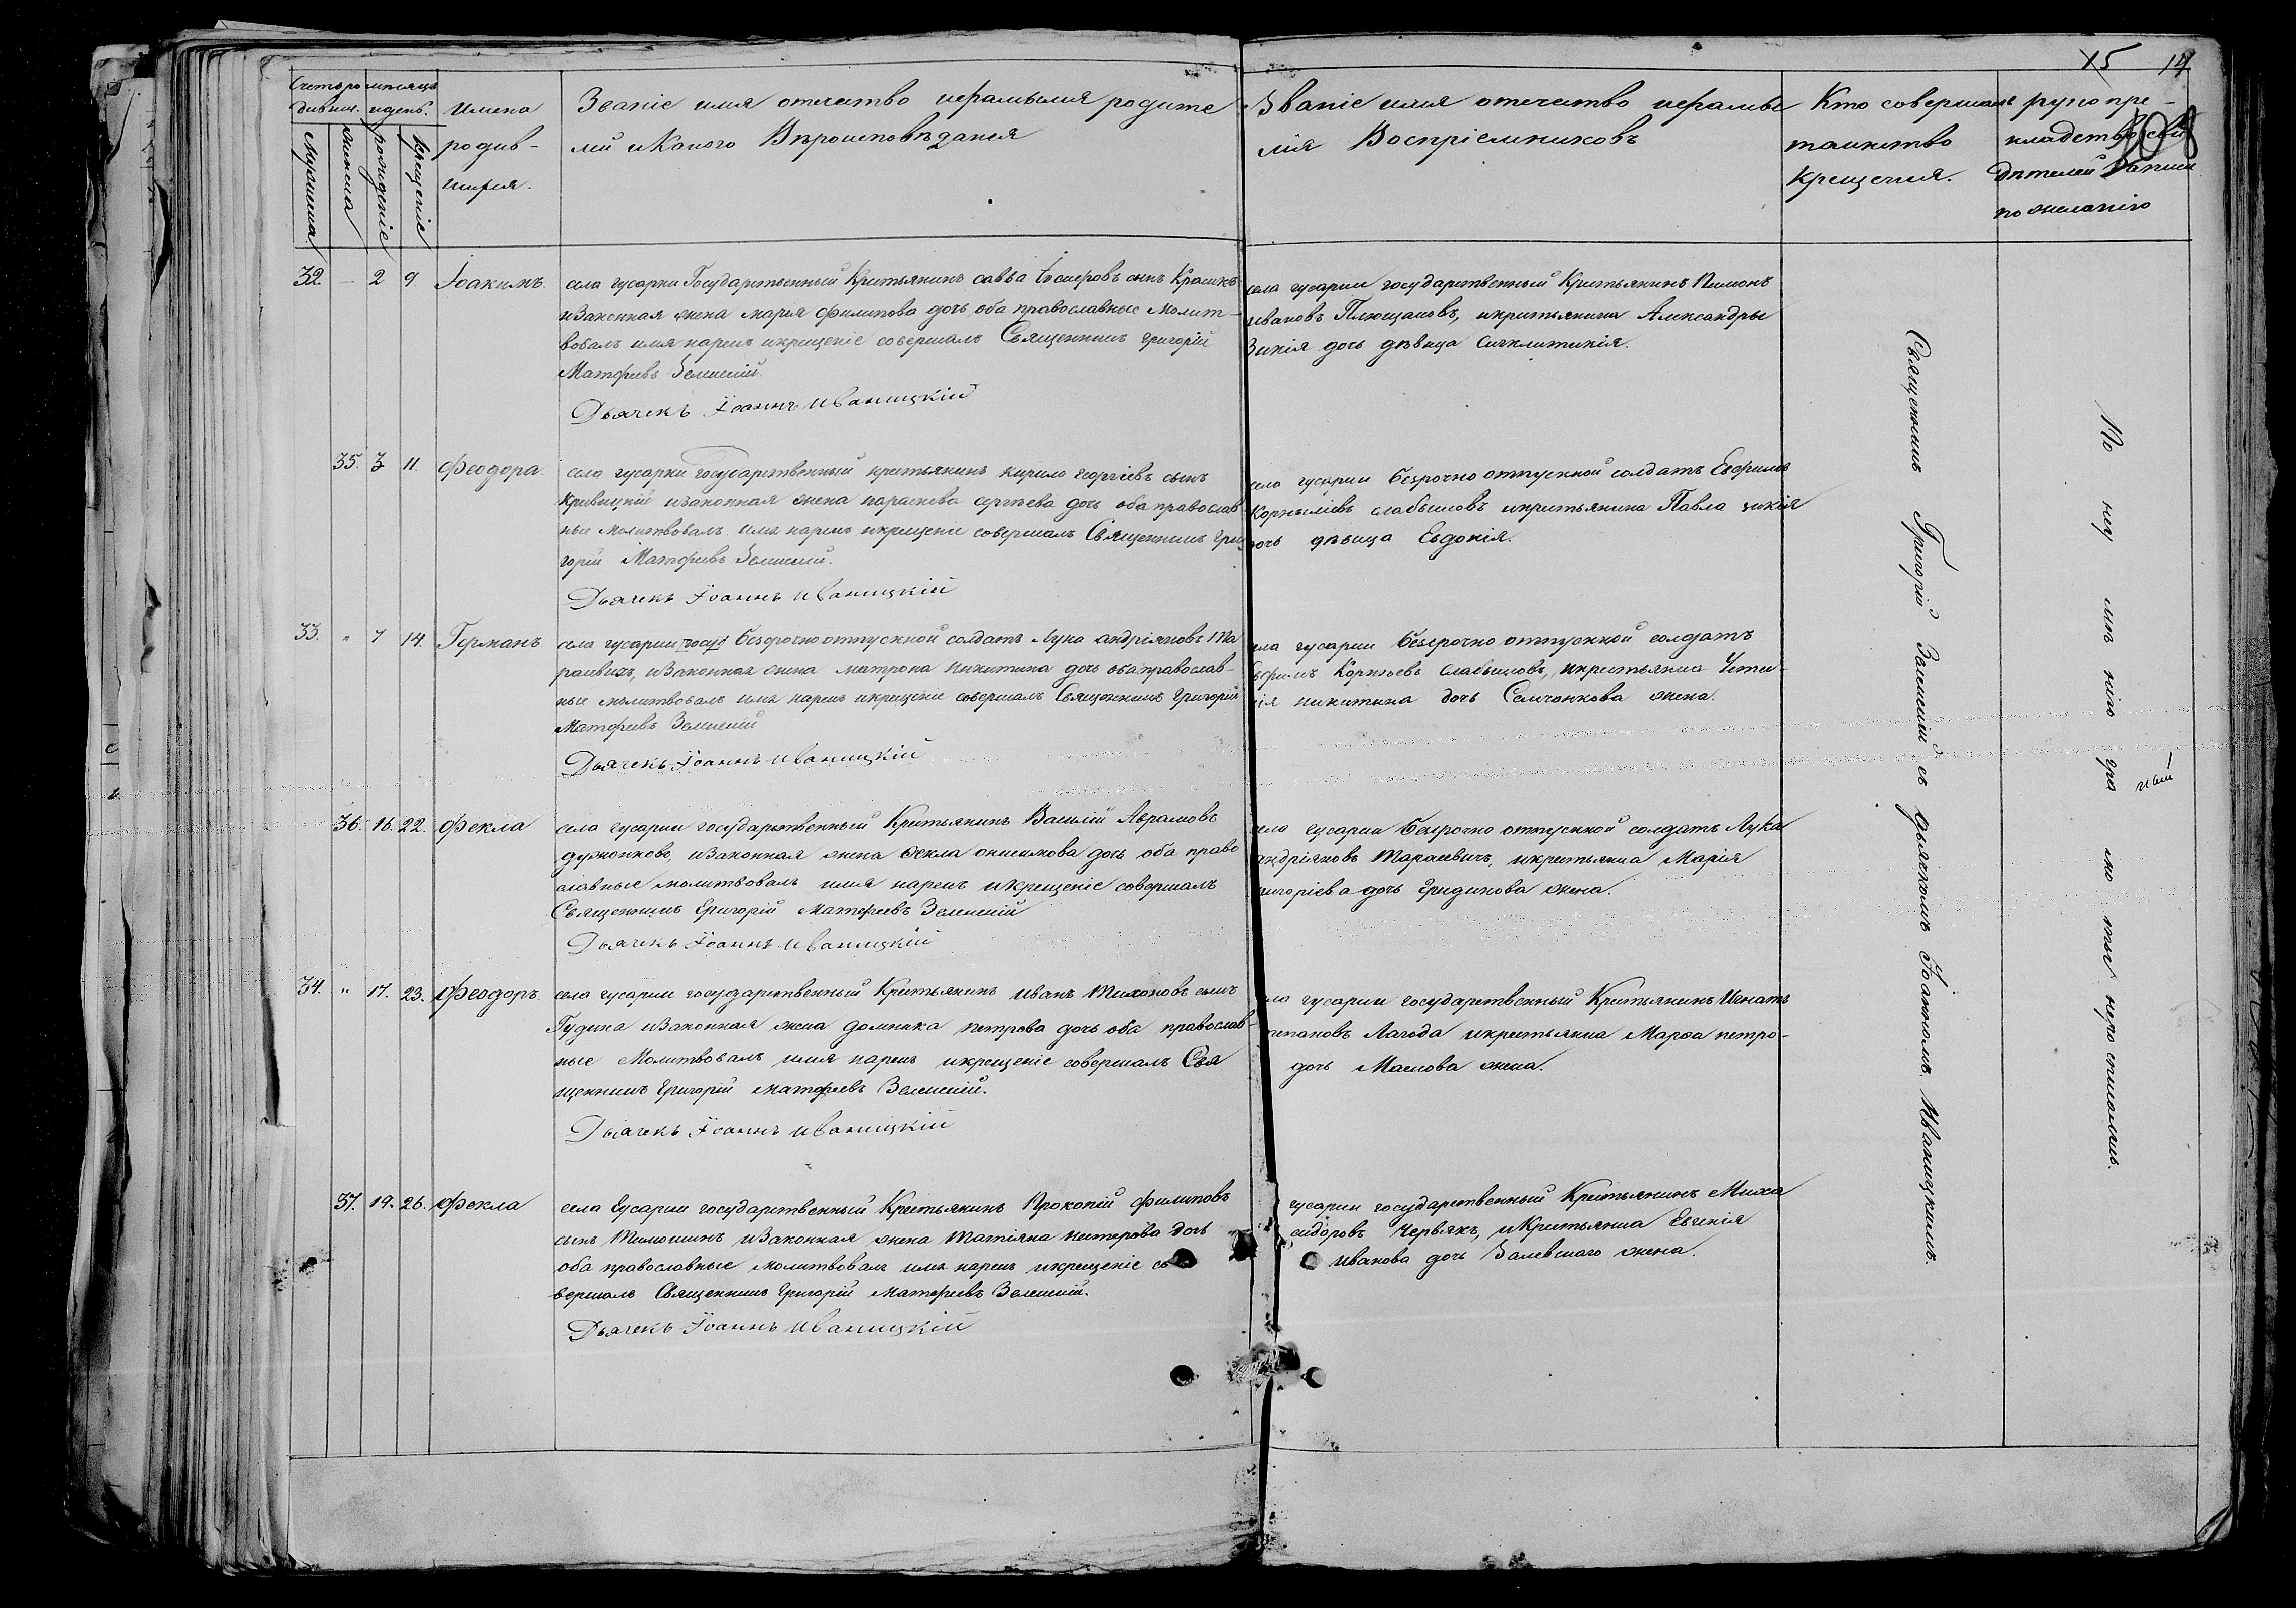 15 14
108
Счетъ ро мѣсяцъ
дивш. и день. Имена
родив-
шихся.
Мужеска
женска
рожденіе
крещеніе
Званіе имя отечество и фамилія родите
лей и Какого Вѣроисповѣданія
Званіе имя отечество и фамилі
лія Воспріемниковъ
Кто совершалъ
таинство
Крещенія.
руко при-
кладство сви
дѣтелей записи
по желанію
32. - 2 9. Іоакимъ.
села гусарки Государственный Крестьянинъ савва сынъ
и Законная жена марья филипова дочь оба православные Молит-
вовалъ имя нарекъ и крещеніе совершалъ Священникъ григорій
Матфеевъ Зеленскій
Дьячекъ Іоаннъ Иваницкій
села гусарки государственный Крестьянинъ
ивановъ и крестьянина Александры
дочь дѣвица Синклитикія.
35. 3 11. Феодора.
села гусарки Государственный крестьянинъ кирило георгіевъ сынъ
Кривицкій и законная жена параскева сергѣева дочь оба православ
ные молитвовалъ имя нарекъ и крещеніе совершалъ Священникъ Гри
горій Матфеевъ Зеленскій.
Дьячекъ Іоаннъ Иваницкій
села гусарки безсрочно отпускной солдатъ Евфимъ
Корнѣліевъ слабышовъ и крестьянина Павла
дочь дѣвица Евдокія.
33. " 7 14. Германъ
села гусарки госуд безсрочно отпускной солдатъ Лука андріяновъ Та
расевичъ, и Законная жена матрона никитина дочь оба православ-
ные молитвовалъ имя нарекъ и крещеніе совершалъ Священникъ Григорій
Матфеевъ Зеленскій
Дьячекъ Іоаннъ Иваницкій
села гусарки безсрочно отпускной солдатъ
Евфимъ Корнѣевъ Слабышовъ, и крестьянка Усти-
нія никитина дочь Семчонкова жена.
36. 16. 22. Фекла
села гусарки государственный Крестьянинъ Василій Аврамовъ
дужонковъ, и Законная жена Фекла онисимова дочь оба право
славные молитвовалъ имя нарекъ и крещеніе совершалъ
Священникъ Григорій Матфеевъ Зеленскій
Дьячекъ Іоаннъ Иваницкій
села гусарки безсрочно отпускной солдатъ Лука
андріяновъ Тарасевичъ, и крестьянка Марія
григоріева дочь Гридинова жена.
34. " 17. 23. Феодоръ.
села гусарки государственный Крестьянинъ иванъ Тихоновъ сынъ
Гудина и Законная жена домника петрова дочь оба православ-
ные Молитвовалъ имя нарекъ и крещеніе совершалъ Свя
щенникъ Григорій матфеевъ Зеленскій.
Дьячекъ Іоаннъ Иваницкій
села гусарки государственный Крестьянинъ Игнатъ
степановъ Лагода и крестьянка Марѳа петро-
дочь Маслова жена.
37. 19. 26. Фекла
села Гусарки государственный Крестьянинъ Прокопій филиповъ
сынъ Тимошинъ и Законная жена Татіяна нестерова дочь
оба православные молитвовалъ имя нарекъ и крещеніе со
вершалъ Священникъ Григорій Матфеевъ Зеленскій.
Дьячекъ Іоаннъ Иваницкій
гусарки государственный Крестьянинъ Миха
сидоровъ Червякъ, и Крестьянка Евгенія
иванова дочь Залевскаго жена.
Священникъ Григорій Зеленскій съ дьячкомъ Іоанномъ Иваницкимъ.
По не умѣнію грамоты